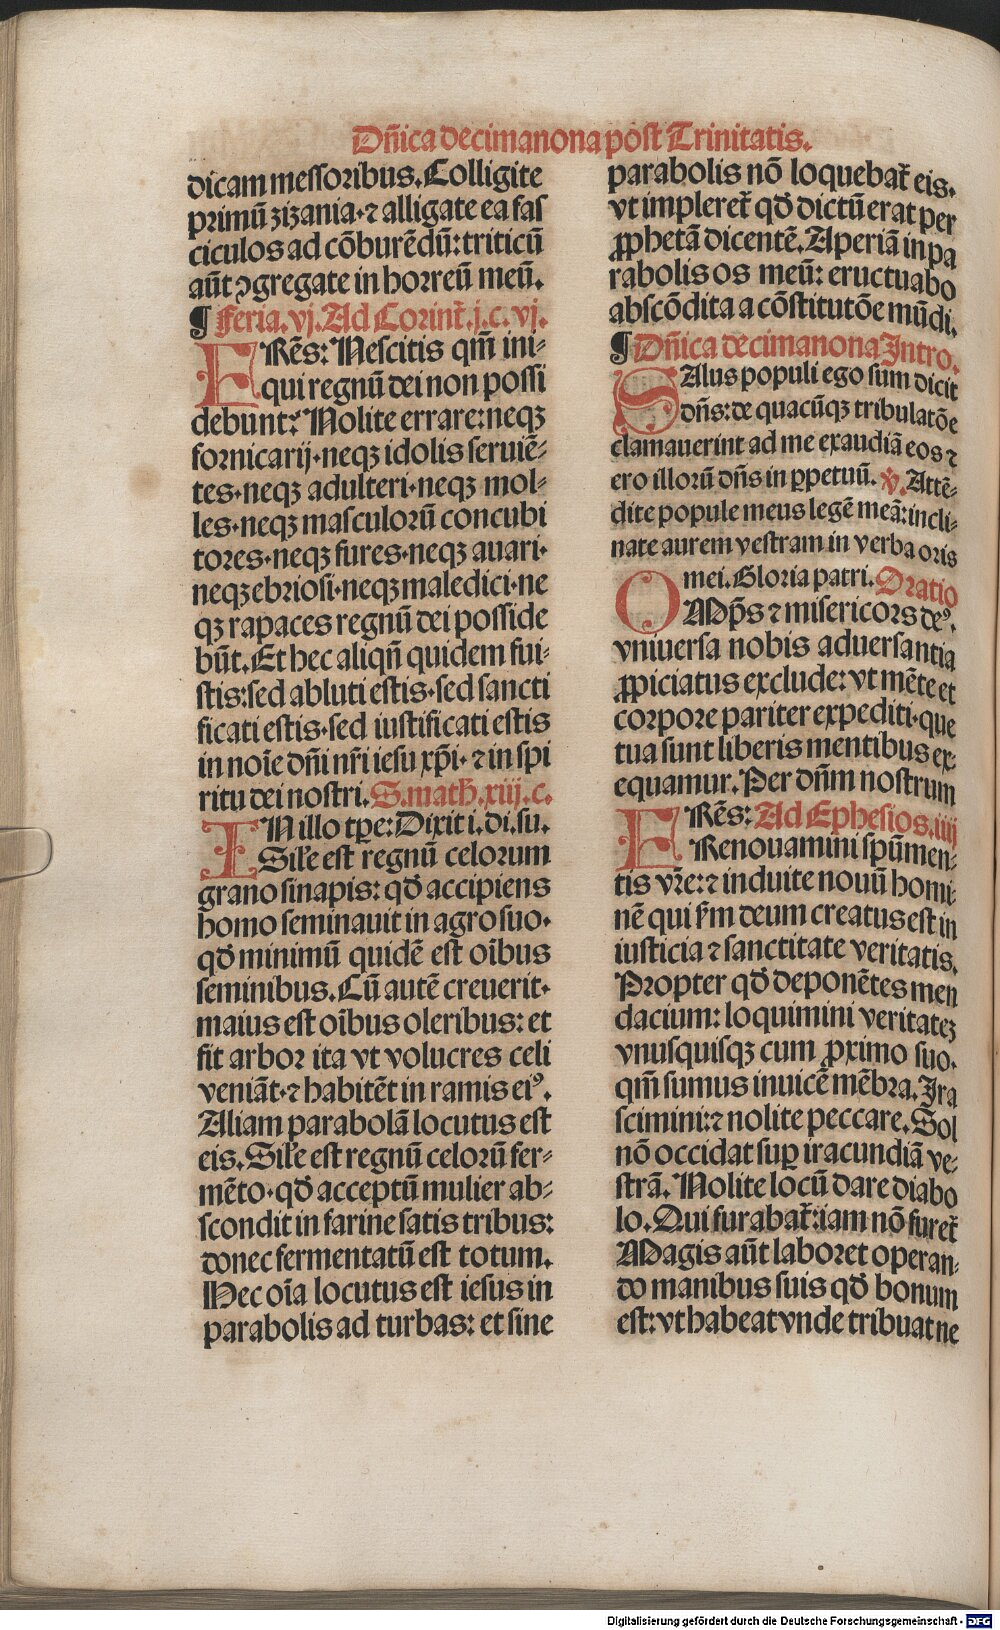 Dñica decimanona post Trinitatis.
dicam messoribus. Colligite
primū zizania· ⁊ alligate ea fas
ciculos ad cōburēdū: triticū
aūt ꝯgregate in horreū meū.
¶ Feria. vj. Ad Corint̃. j. c. vj.
FRēs: Nescitis qm̄ ini-
qui regnū dei non possi
debunt? Nolite errare: neqꝫ
fornicarij· neqꝫ idolis seruiē-
tes· neqꝫ adulteri· neqꝫ mol-
les· neqꝫ masculorū concubi
tores· neqꝫ fures· neqꝫ auari·
neqꝫ ebriosi· neqꝫ maledici· ne
qꝫ rapaces regnū dei posside
būt. Et hec aliqñ quidem fui-
stis: sed abluti estis· sed sancti
ficati estis· sed iustificati estis
in noīe dñi nr̄i iesu xp̄i· ⁊ in spi
ritu dei nostri. S. math̄. xiij. c.
IN illo tp̄e: Dixit i. di. su.
Sil̄e est regnū celorum
grano sinapis: qd̄ accipiens
homo seminauit in agro suo·
qd̄ minimū quidē est oībus
seminibus. Cū autē creuerit·
maius est oībus oleribus: et
fit arbor ita vt volucres celi
veniāt· ⁊ habitēt in ramis eiꝰ.
Aliam parabolā locutus est
eis. Sil̄e est regnū celorū fer-
mēto· qd̄ acceptū mulier ab-
scondit in farine satis tribus:
donec fermentatū est totum.
Hec oīa locutus est iesus in
parabolis ad turbas: et sine
parabolis nō loquebat̃ eis.
vt impleret̃ qd̄ dictū erat per
ꝓphetā dicentē. Aperiā in pa
rabolis os meū: eructuabo
abscōdita a cōstitutōe mūdi.
¶ Dñica decimanona Intro.
SAlus populi ego sum dicit
dñs: de quacūqꝫ tribulatōe
clamauerint ad me exaudiā eos ⁊
ero illorū dñs in ꝑpetuū. ℣. Attē-
dite popule meus legē meā: incli-
nate aurem vestram in verba oris
mei. Gloria patri. Oratio
OMp̄s ⁊ misericors deꝰ.
vniuersa nobis aduersantia
ꝓpiciatus exclude: vt mēte et
corpore pariter expediti· que
tua sunt liberis mentibus ex-
equamur. Per dñm nostrum
FRēs: Ad Ephesios. iiij
Renouamini spū men-
tis vr̄e: ⁊ induite nouū homi-
nē qui ẜm deum creatus est in
iusticia ⁊ sanctitate veritatis.
Propter qd̄ deponētes men
dacium: loquimini veritateꝫ
vnusquisqꝫ cum ꝓximo suo.
qm̄ sumus inuicē mēbra. Ira
scimini: ⁊ nolite peccare. Sol
nō occidat suꝑ iracundiā ve-
strā. Nolite locū dare diabo
lo. Qui furabat̃: iam nō furet̃
Magis aūt laboret operan-
do manibus suis qd̄ bonum
est: vt habeat vnde tribuat ne
Digitalisierung gefördert durch die Deutsche Forschungsgemeinschaft - DFG